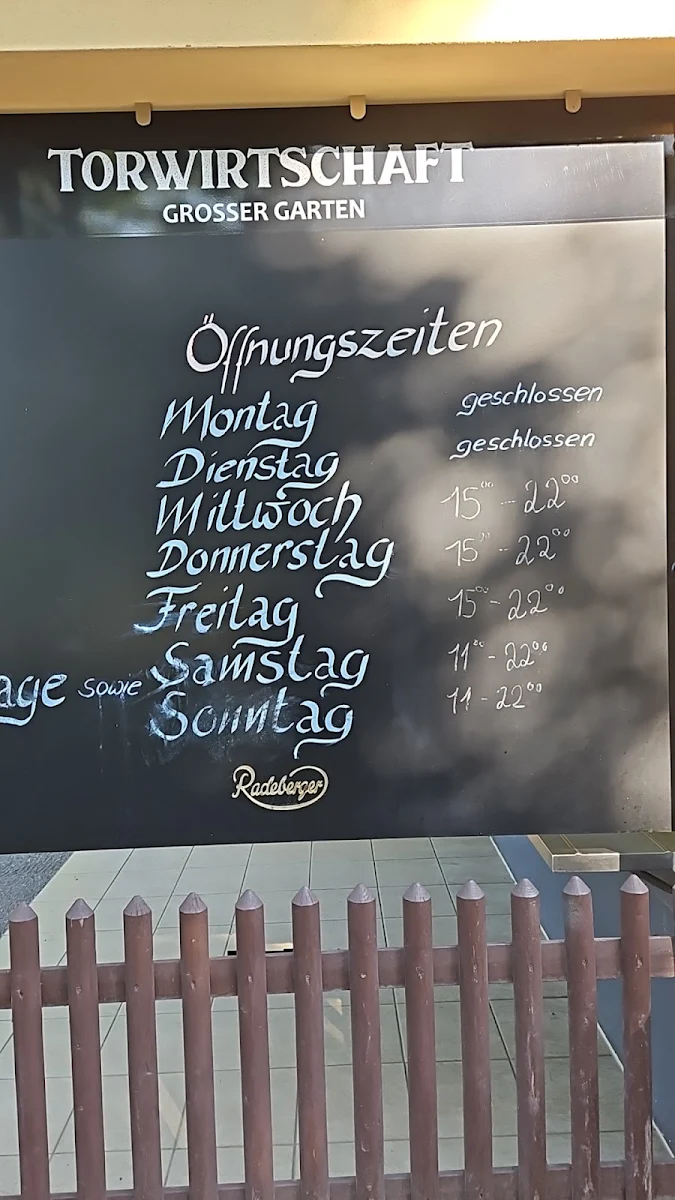 TORWIRTSCHAFT
GROSSER GARTEN
Öffnungszeiten
Montag geschlossen
Dienstag geschlossen
Mittwoch 15⁰⁰ - 22⁰⁰
Donnerstag 15⁰⁰ - 22⁰⁰
Freitag 15⁰⁰ - 22⁰⁰
Samstag 11⁰⁰ - 22⁰⁰
age sowie Sonntag 11 - 22⁰⁰
Radeberger